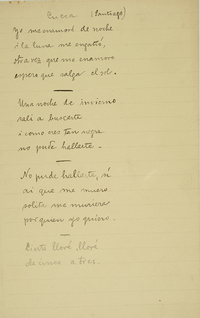 Cueca (Santiago)
Yo me enamoré de noche
i la luna me engañó,
otra vez que me enamore
espero que salga el sol.
Una noche de invierno
salí a buscarte
i como eres tan negra
no pude hallarte.
No pude hallarte, sí
ai que me muero
solita me muriera
por quien yo quiero.
lloré, lloré
de a tres.